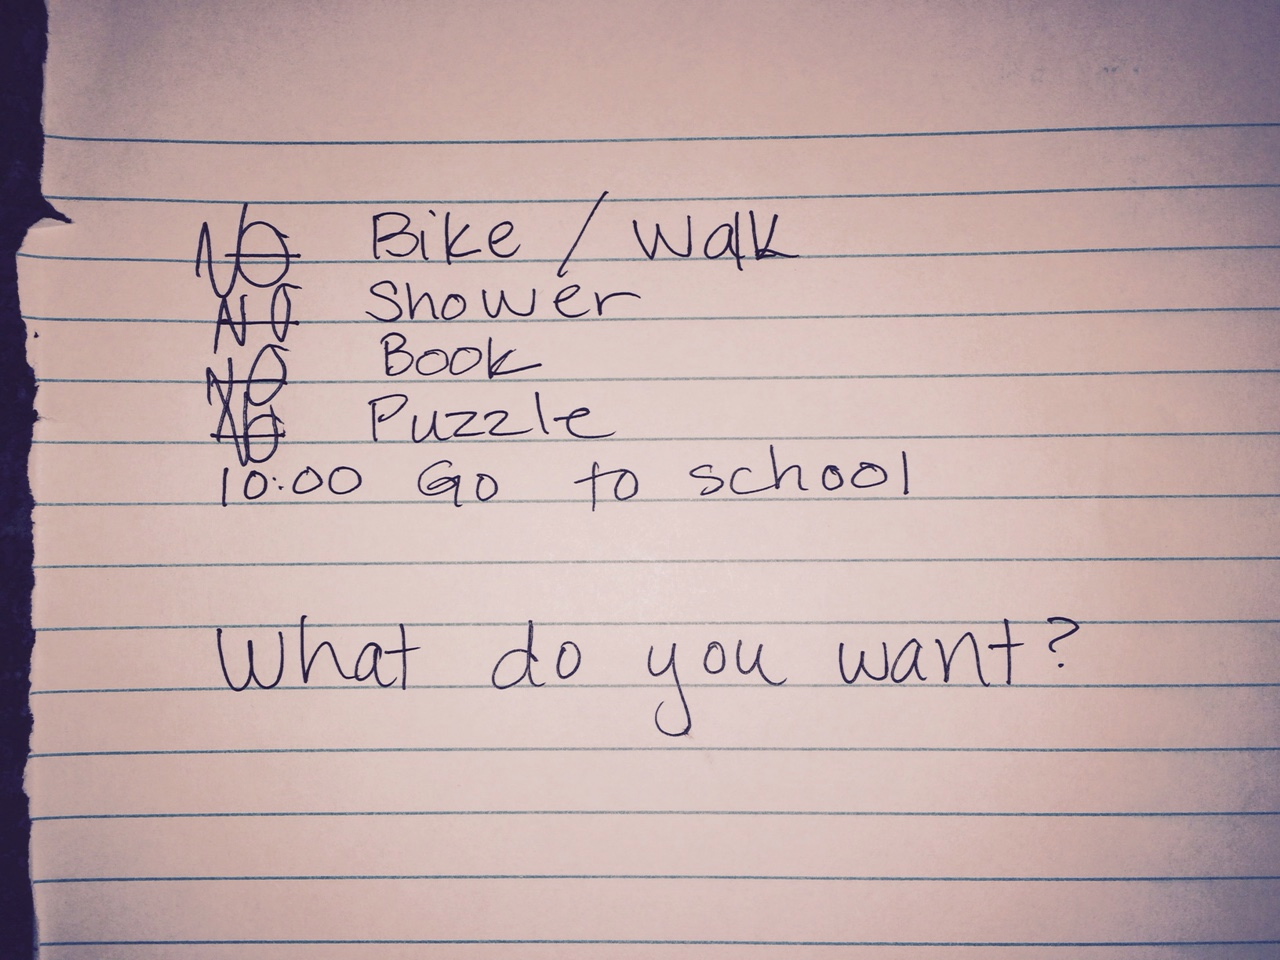 NO Bike / Walk
NO Shower
NO Book
NO Puzzle
10:00 Go to school
What do you want?